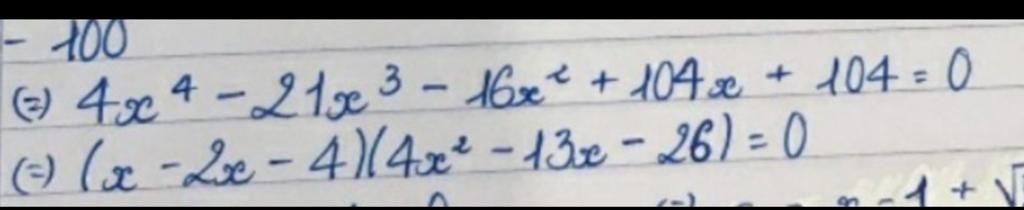 - 100
(=) 4x⁴ - 21x³ - 16x² + 104x + 104 = 0
(=) (x - 2x - 4)(4x² - 13x - 26) = 0
- 1 + √